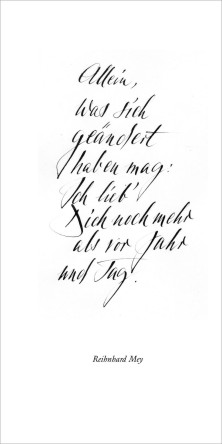 Allein,
was sich
geändert
haben mag:
Ich lieb'
Dich noch mehr
als vor Jahr
und Tag.
Reibnhard Mey